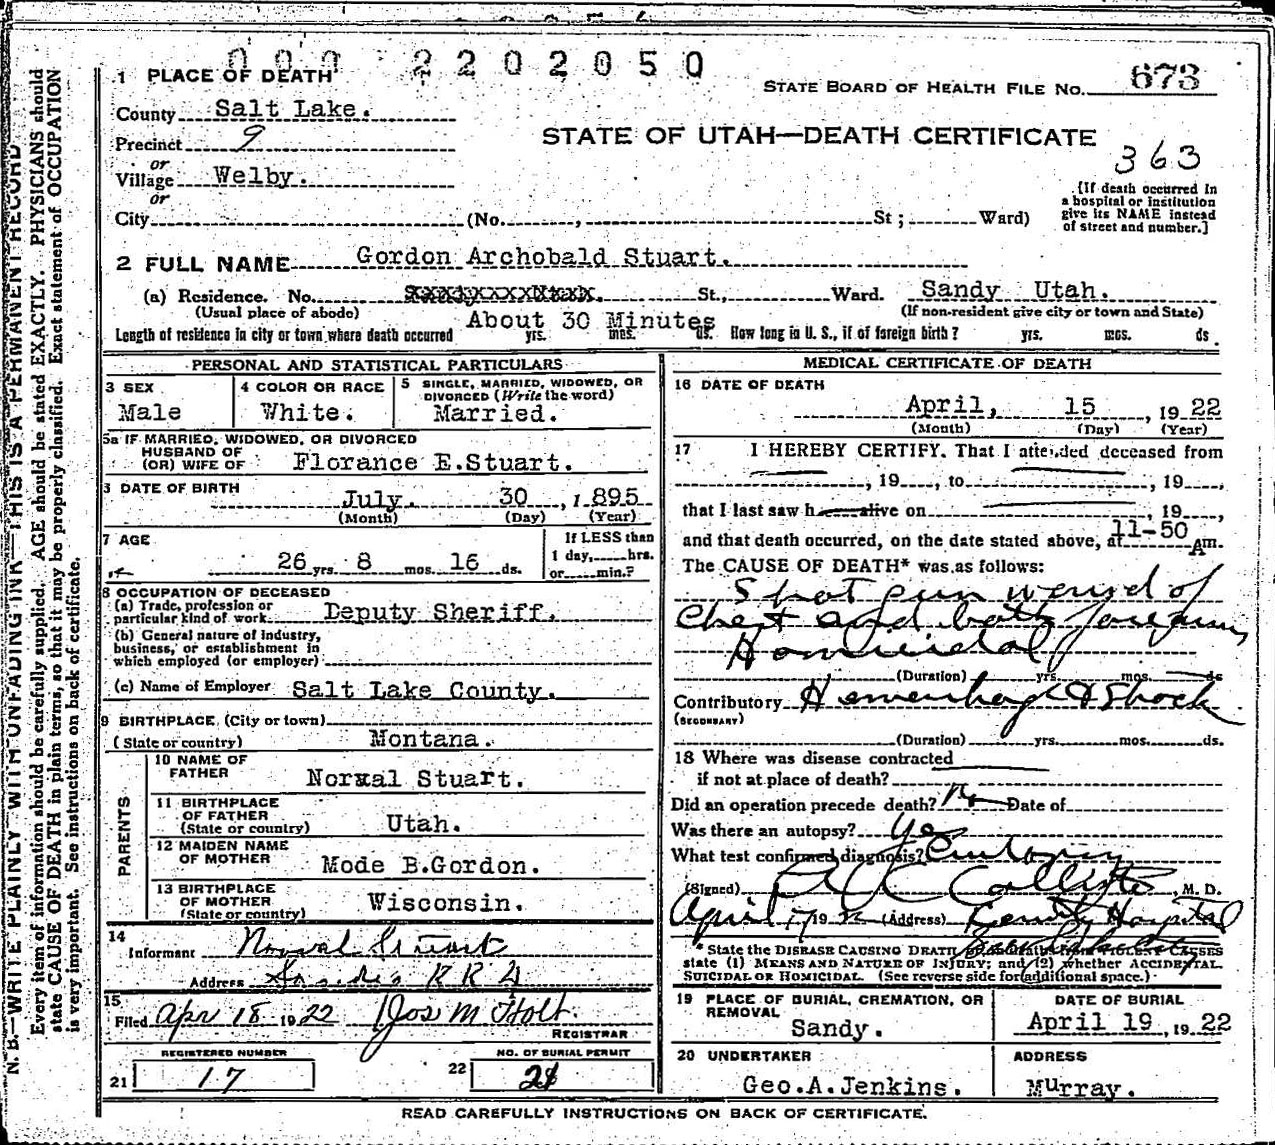 000 2202050
1 PLACE OF DEATH
STATE BOARD OF HEALTH FILE NO. 673
County Salt Lake.
Precinct 9
STATE OF UTAH—DEATH CERTIFICATE
363
or
Village Welby.
or
City (No. , St ; Ward)
[If death occurred in
a hospital or institution
give its NAME instead
of street and number.]
2 FULL NAME Gordon Archobald Stuart.
(a) Residence. No. St., Ward. Sandy Utah.
(Usual place of abode) (If non-resident give city or town and State)
Length of residence in city or town where death occurred About 30 Minutes yrs. mos. ds. How long in U. S., if of foreign birth? yrs. mos. ds.
PERSONAL AND STATISTICAL PARTICULARS
3 SEX
Male
4 COLOR OR RACE
White.
5 SINGLE, MARRIED, WIDOWED, OR
DIVORCED (Write the word)
Married.
5a IF MARRIED, WIDOWED, OR DIVORCED
HUSBAND OF
(OR) WIFE OF Florance E.Stuart.
DATE OF BIRTH
July. 30 , 1895
(Month) (Day) (Year)
7 AGE
26 yrs. 8 mos. 16 ds.
If LESS than
1 day, hrs.
or min.?
8 OCCUPATION OF DECEASED
(a) Trade, profession or
particular kind of work Deputy Sheriff.
(b) General nature of industry,
business, or establishment in
which employed (or employer)
(c) Name of Employer Salt Lake County.
9 BIRTHPLACE (City or town)
(State or country) Montana.
PARENTS
10 NAME OF
FATHER Norval Stuart.
11 BIRTHPLACE
OF FATHER
(State or country) Utah.
12 MAIDEN NAME
OF MOTHER Mode B.Gordon.
13 BIRTHPLACE
OF MOTHER
(State or country) Wisconsin.
14
Informant Norval Stuart
Address R R 4
15
Filed Apr 18 1922 Jos M Holt.
REGISTRAR
REGISTERED NUMBER
21 17
NO. OF BURIAL PERMIT
22 21
MEDICAL CERTIFICATE OF DEATH
16 DATE OF DEATH
April, 15 , 1922
(Month) (Day) (Year)
17 I HEREBY CERTIFY. That I attended deceased from
, 19 , to , 19 ,
that I last saw h alive on , 19 ,
and that death occurred, on the date stated above, at 11-50 Am.
The CAUSE OF DEATH* was as follows:
Shot gun wound of
Chest and both forearms
Homicidal
(Duration) yrs. mos. ds
Contributory Hemorrhage & Shock
(SECONDARY)
(Duration) yrs. mos. ds.
18 Where was disease contracted
if not at place of death?
Did an operation precede death? No Date of
Was there an autopsy? Yes
What test confirmed diagnosis? Autopsy
(Signed) A C Callister, M. D.
April 17 1922 (Address) County Hospital
* State the DISEASE CAUSING DEATH, or in deaths from VIOLENT CAUSES
state (1) MEANS AND NATURE OF INJURY; and (2) whether ACCIDENTAL
SUICIDAL OR HOMICIDAL. (See reverse side for additional space.)
19 PLACE OF BURIAL, CREMATION, OR
REMOVAL
Sandy.
DATE OF BURIAL
April 19 , 1922
20 UNDERTAKER
Geo.A.Jenkins.
ADDRESS
Murray.
READ CAREFULLY INSTRUCTIONS ON BACK OF CERTIFICATE.
N. B.—WRITE PLAINLY WITH UNFADING INK—THIS IS A PERMANENT RECORD
Every item of information should be carefully supplied. AGE should be stated EXACTLY. PHYSICIANS should
state CAUSE OF DEATH in plain terms, so that it may be properly classified. Exact statement of OCCUPATION
is very important. See instructions on back of certificate.